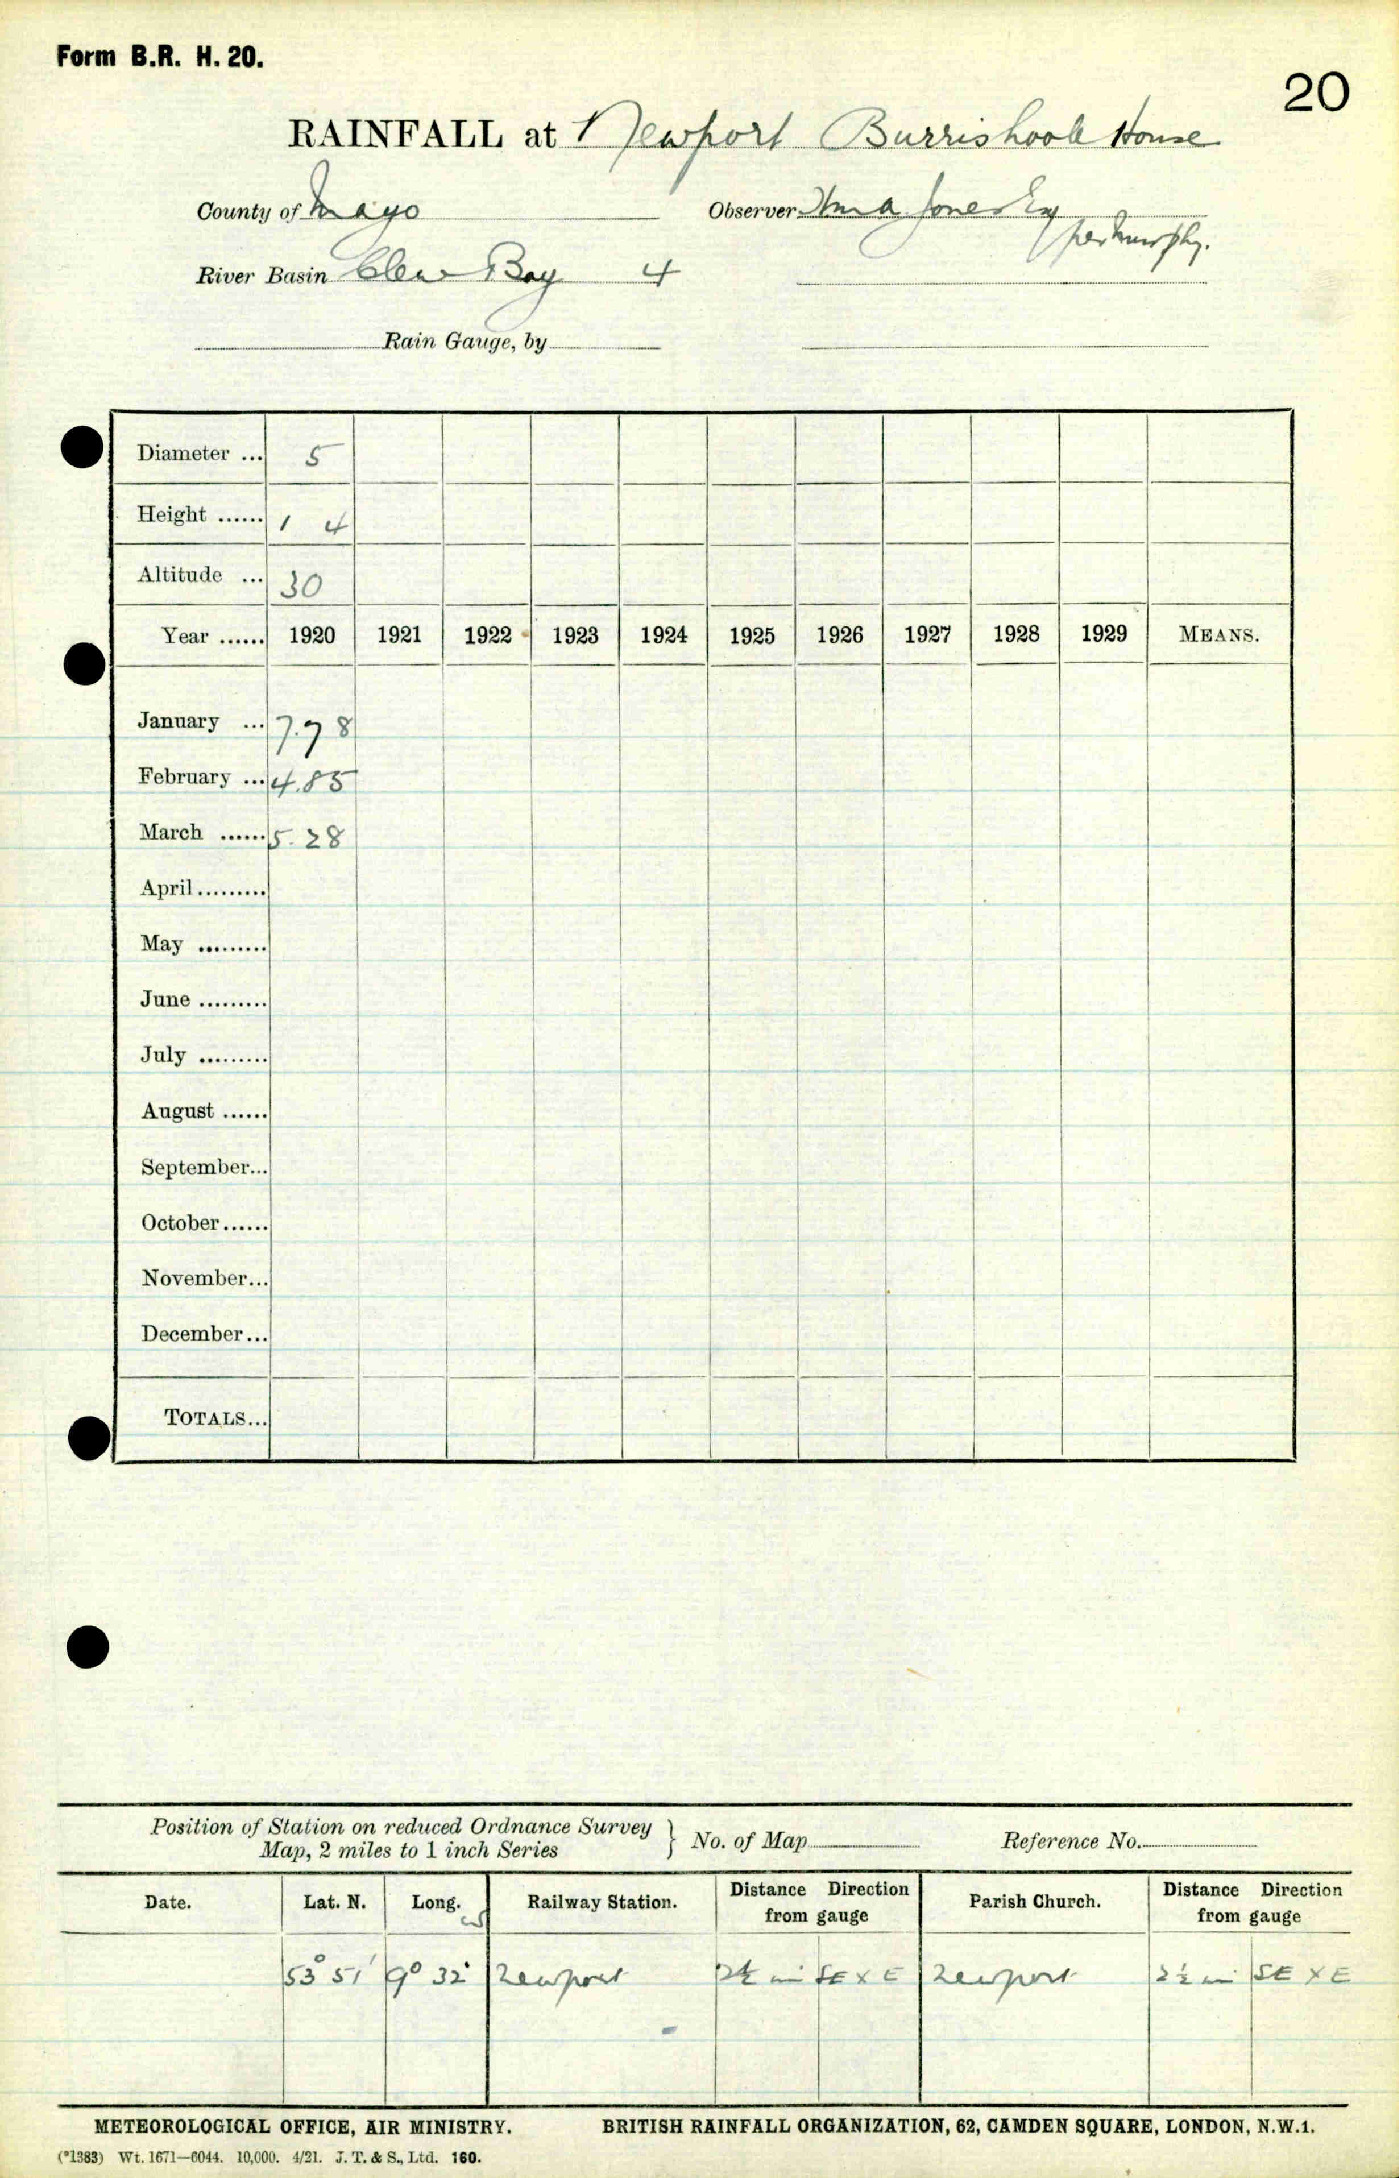 Form B.R. H. 20.
20
RAINFALL at Newport Burrishoole House
County of Mayo Observer Jones Esq
per Murphy.
River Basin Clew Bay 4
Rain Gauge, by
Diameter ... 5
Height ...... 1 4
Altitude ... 30
Year ...... 1920 1921 1922 1923 1924 1925 1926 1927 1928 1929 MEANS.
January ... 7.78
February ... 4.85
March ...... 5.28
April.........
May .........
June .........
July .........
August ......
September...
October......
November...
December...
TOTALS...
Position of Station on reduced Ordnance Survey
Map, 2 miles to 1 inch Series } No. of Map Reference No.
Date. Lat. N. Long. W Railway Station. Distance Direction from gauge Parish Church. Distance Direction from gauge
53° 51' 9° 32' Newport 2½ mi SE x E Newport 2½ mi SE x E
METEOROLOGICAL OFFICE, AIR MINISTRY. BRITISH RAINFALL ORGANIZATION, 62, CAMDEN SQUARE, LONDON, N.W.1.
(*1383) Wt. 1671—6044. 10,000. 4/21. J. T. & S., Ltd. 160.